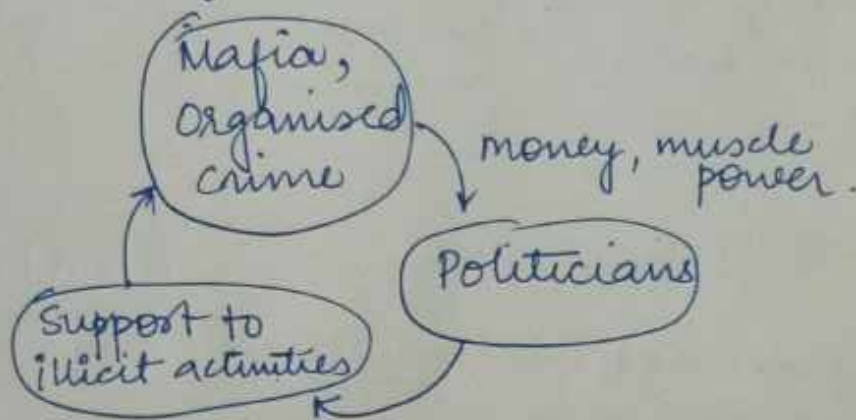 Mafia,
organised
crime
money, muscle
power.
Politicians
Support to
illicit activities